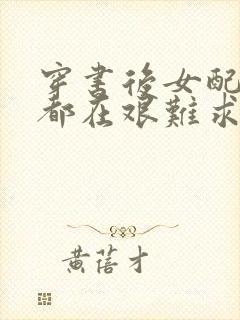 穿書後女配
都在艱難求
黃蓓才